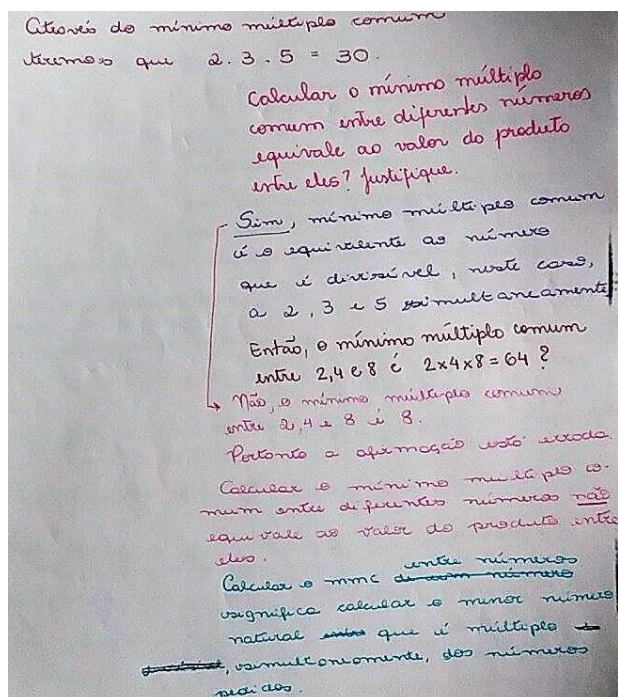 Através do mínimo múltiplo comum
tiremos que 2.3.5 = 30.
Calcular o mínimo múltiplo
comum entre diferentes números
equivale ao valor do produto
entre eles? Justifique.
Sim, mínimo múltiplo comum
é o equivalente ao número
que é divisível, neste caso,
a 2, 3 e 5 simultaneamente
Então, o mínimo múltiplo comum
entre 2,4 e 8 é 2x4x8=64?
Não, o mínimo múltiplo comum
entre 2,4 e 8 é 8.
Portanto a afirmação está errada.
Calcular o mínimo múltiplo co-
mum entre diferentes números não
equivale ao valor do produto entre
eles.
entre números
Calcular o mmc de com número
significa calcular o menor número
natural que é múltiplo
, simultaneamente, dos números
pedidos.